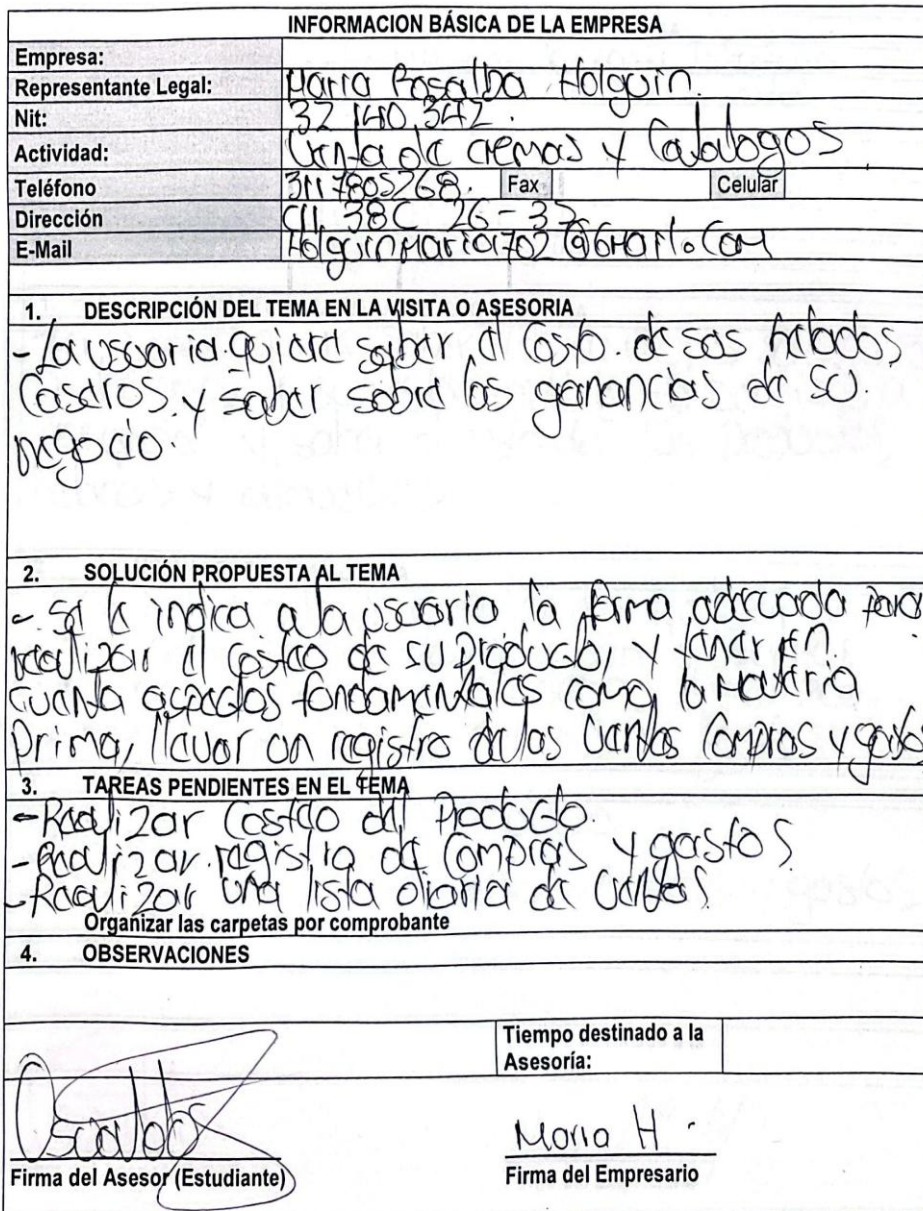 INFORMACION BÁSICA DE LA EMPRESA
Empresa:
Representante Legal: Maria Rosalba Holguin.
Nit: 32 140 342.
Actividad: Venta de cremas y Catalogos
Teléfono 3117805268. Fax Celular
Dirección Cll 38C 26-37
E-Mail HolguinMaria1702@GMail.Com
1. DESCRIPCIÓN DEL TEMA EN LA VISITA O ASESORIA
- La usuaria quiere saber el Costo de sus helados
Caseros y saber sobre las ganancias de su
negocio.
2. SOLUCIÓN PROPUESTA AL TEMA
- Se le indica a la usuario la forma adecuada para
realizar el costeo de su Producto y tener en
cuenta aspectos fundamentales como la Materia
Prima, llevar un registro de las Ventas Compras y gastos
3. TAREAS PENDIENTES EN EL TEMA
- Realizar Costeo del Producto.
- Realizar registro de Compras y gastos
- Realizar una lista diaria de Ventas
Organizar las carpetas por comprobante
4. OBSERVACIONES
Tiempo destinado a la
Asesoría:
Maria H.
Firma del Asesor (Estudiante) Firma del Empresario